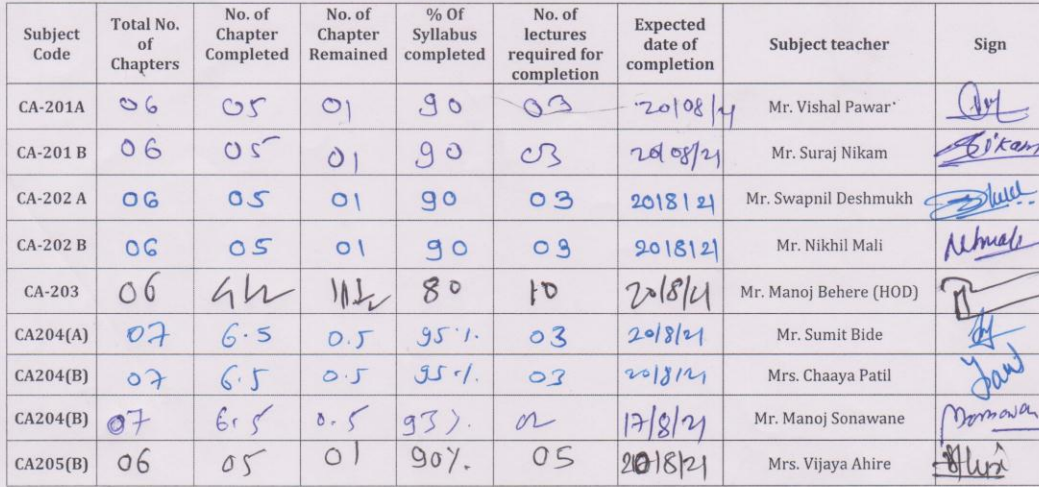 Subject Code | Total No. of Chapters | No. of Chapter Completed | No. of Chapter Remained | % Of Syllabus completed | No. of lectures required for completion | Expected date of completion | Subject teacher | Sign
CA-201A | 06 | 05 | 01 | 90 | 03 | 20/08/21 | Mr. Vishal Pawar
CA-201 B | 06 | 05 | 01 | 90 | 03 | 20/08/21 | Mr. Suraj Nikam | Nikam
CA-202 A | 06 | 05 | 01 | 90 | 03 | 20/8/21 | Mr. Swapnil Deshmukh
CA-202 B | 06 | 05 | 01 | 90 | 03 | 20/8/21 | Mr. Nikhil Mali
CA-203 | 06 | 4 1/2 | 1 1/2 | 80 | 10 | 20/8/21 | Mr. Manoj Behere (HOD)
CA204(A) | 07 | 6.5 | 0.5 | 95% | 03 | 20/8/21 | Mr. Sumit Bide
CA204(B) | 07 | 6.5 | 0.5 | 95% | 03 | 20/8/21 | Mrs. Chaaya Patil
CA204(B) | 07 | 6.5 | 0.5 | 93% | 02 | 17/8/21 | Mr. Manoj Sonawane
CA205(B) | 06 | 05 | 01 | 90% | 05 | 20/8/21 | Mrs. Vijaya Ahire